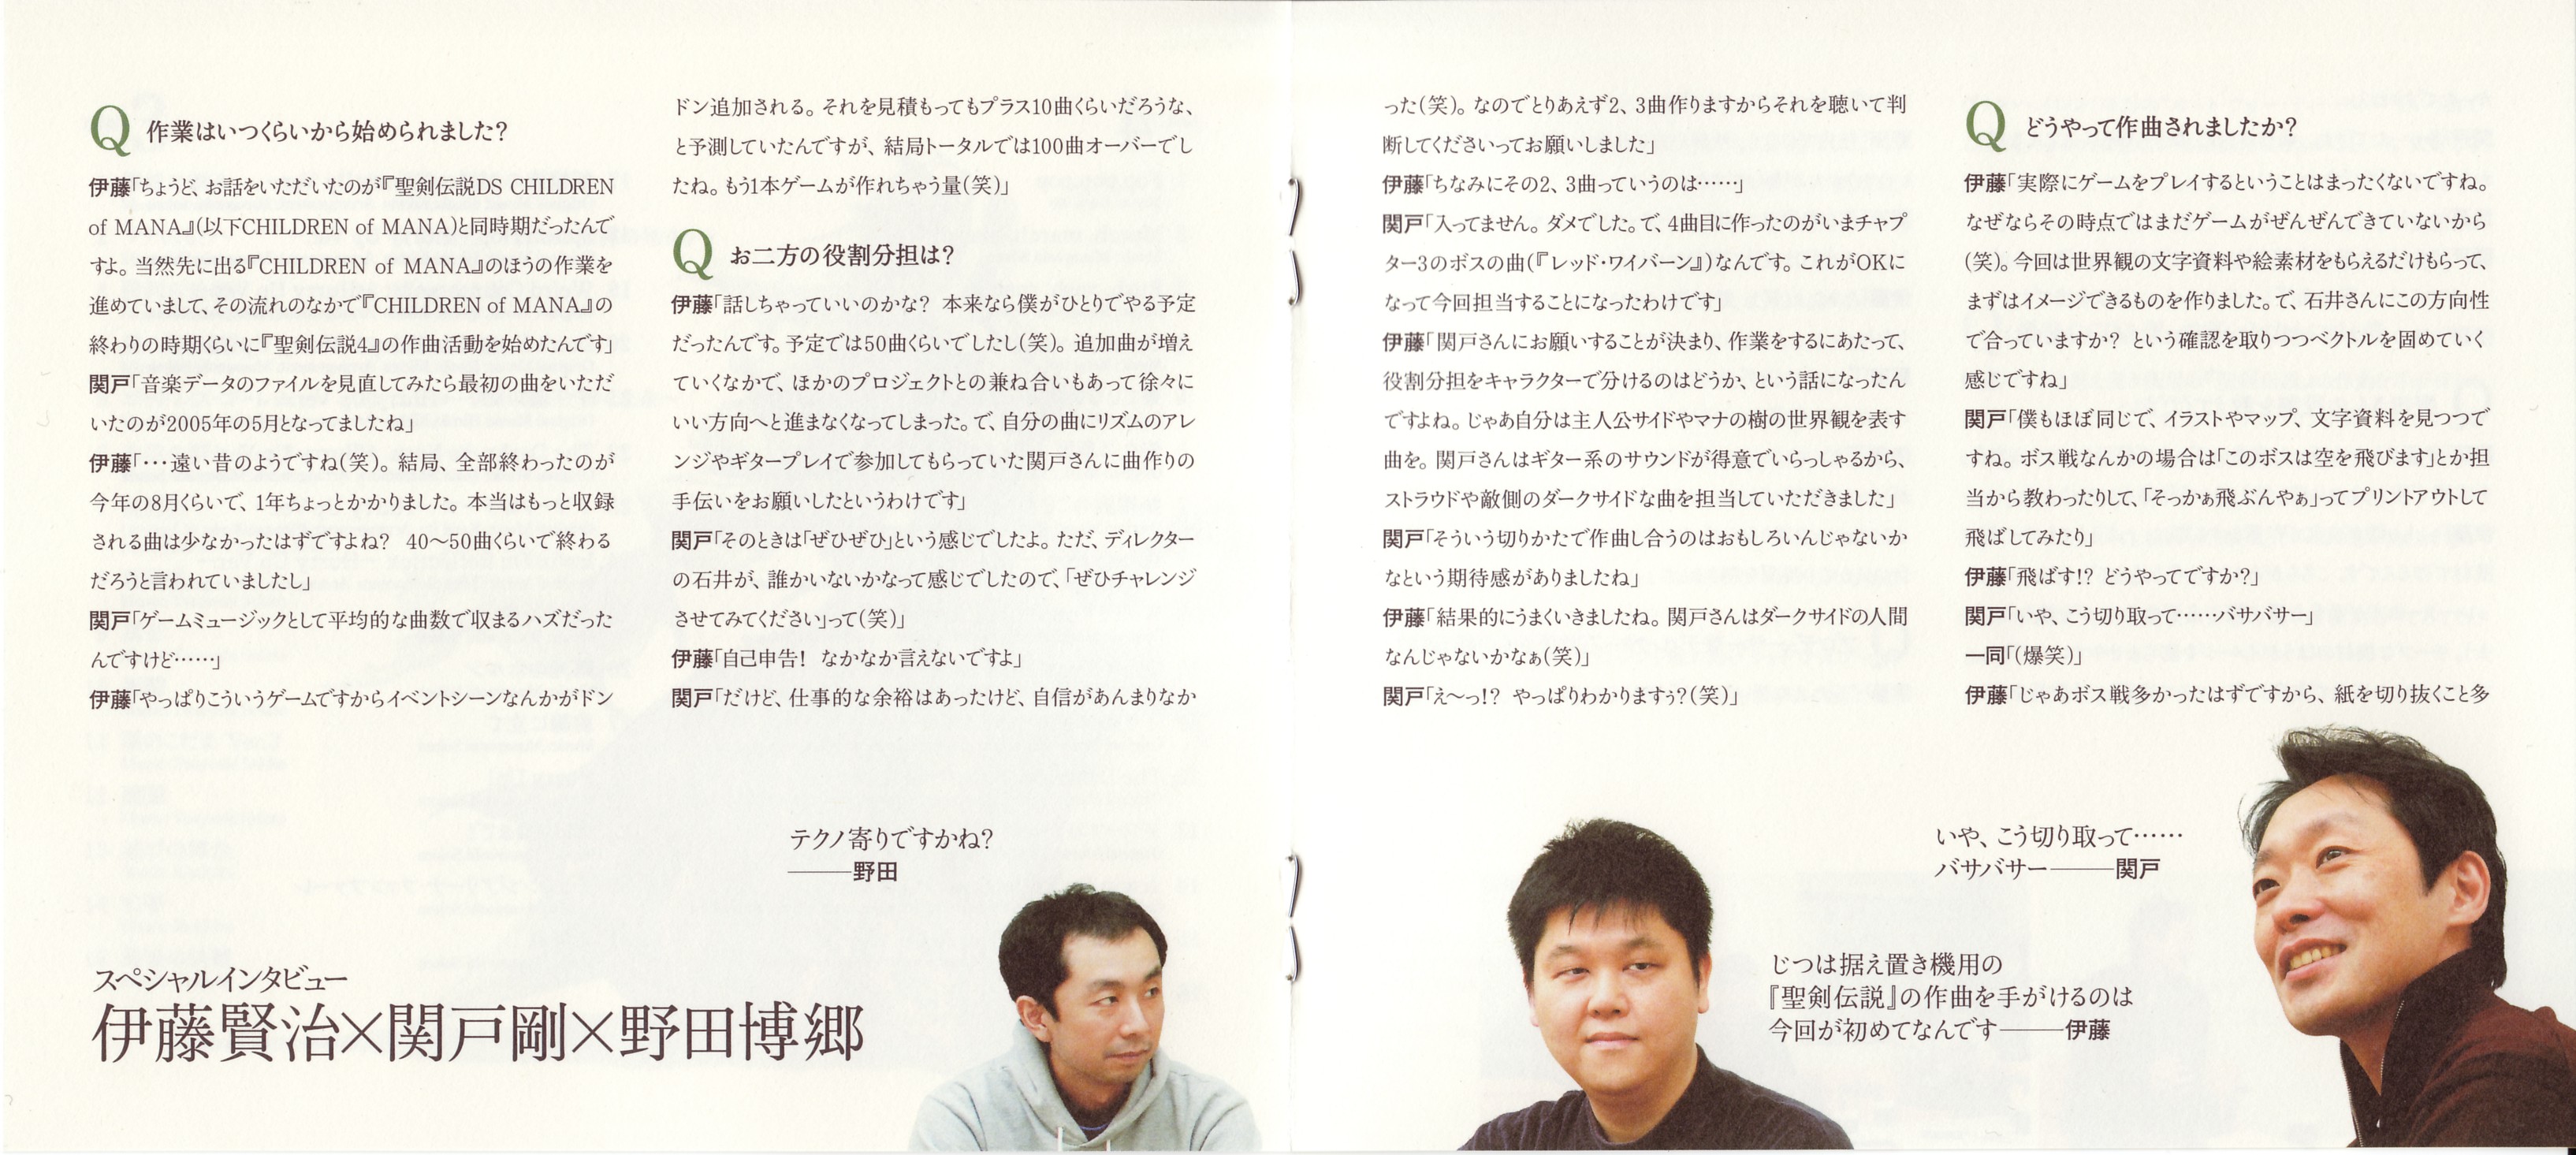 Q 作業はいつくらいから始められました？
伊藤「ちょうど、お話をいただいたのが『聖剣伝説DS CHILDREN
of MANA』(以下CHILDREN of MANA)と同時期だったんで
すよ。当然先に出る『CHILDREN of MANA』のほうの作業を
進めていまして、その流れのなかで『CHILDREN of MANA』の
終わりの時期くらいに『聖剣伝説4』の作曲活動を始めたんです」
関戸「音楽データのファイルを見直してみたら最初の曲をいただ
いたのが2005年の5月となってましたね」
伊藤「…遠い昔のようですね(笑)。結局、全部終わったのが
今年の8月くらいで、1年ちょっとかかりました。本当はもっと収録
される曲は少なかったはずですよね？ 40〜50曲くらいで終わる
だろうと言われていましたし」
関戸「ゲームミュージックとして平均的な曲数で収まるハズだった
んですけど……」
伊藤「やっぱりこういうゲームですからイベントシーンなんかがドン
ドン追加される。それを見積もってもプラス10曲くらいだろうな、
と予測していたんですが、結局トータルでは100曲オーバーでし
たね。もう1本ゲームが作れちゃう量(笑)」
Q お二方の役割分担は？
伊藤「話しちゃっていいのかな？ 本来なら僕がひとりでやる予定
だったんです。予定では50曲くらいでしたし(笑)。追加曲が増え
ていくなかで、ほかのプロジェクトとの兼ね合いもあって徐々に
いい方向へと進まなくなってしまった。で、自分の曲にリズムのアレ
ンジやギタープレイで参加してもらっていた関戸さんに曲作りの
手伝いをお願いしたというわけです」
関戸「そのときは「ぜひぜひ」という感じでしたよ。ただ、ディレクター
の石井が、誰かいないかなって感じでしたので、「ぜひチャレンジ
させてみてください」って(笑)」
伊藤「自己申告！ なかなか言えないですよ」
関戸「だけど、仕事的な余裕はあったけど、自信があんまりなか
った(笑)。なのでとりあえず2、3曲作りますからそれを聴いて判
断してくださいってお願いしました」
伊藤「ちなみにその2、3曲っていうのは……」
関戸「入ってません。ダメでした。で、4曲目に作ったのがいまチャプ
ター3のボスの曲(『レッド・ワイバーン』)なんです。これがOKに
なって今回担当することになったわけです」
伊藤「関戸さんにお願いすることが決まり、作業をするにあたって、
役割分担をキャラクターで分けるのはどうか、という話になったん
ですよね。じゃあ自分は主人公サイドやマナの樹の世界観を表す
曲を。関戸さんはギター系のサウンドが得意でいらっしゃるから、
ストラウドや敵側のダークサイドな曲を担当していただきました」
関戸「そういう切りかたで作曲し合うのはおもしろいんじゃないか
なという期待感がありましたね」
伊藤「結果的にうまくいきましたね。関戸さんはダークサイドの人間
なんじゃないかなぁ(笑)」
関戸「え〜っ!? やっぱりわかりますぅ？(笑)」
Q どうやって作曲されましたか？
伊藤「実際にゲームをプレイするということはまったくないですね。
なぜならその時点ではまだゲームがぜんぜんできていないから
(笑)。今回は世界観の文字資料や絵素材をもらえるだけもらって、
まずはイメージできるものを作りました。で、石井さんにこの方向性
で合っていますか？ という確認を取りつつベクトルを固めていく
感じですね」
関戸「僕もほぼ同じで、イラストやマップ、文字資料を見つつで
すね。ボス戦なんかの場合は「このボスは空を飛びます」とか担
当から教わったりして、「そっかぁ飛ぶんやぁ」ってプリントアウトして
飛ばしてみたり」
伊藤「飛ばす!? どうやってですか？」
関戸「いや、こう切り取って……バサバサー」
一同「(爆笑)」
伊藤「じゃあボス戦多かったはずですから、紙を切り抜くこと多
テクノ寄りですかね？
――野田
スペシャルインタビュー
伊藤賢治×関戸剛×野田博郷
いや、こう切り取って……
バサバサー――関戸
じつは据え置き機用の
『聖剣伝説』の作曲を手がけるのは
今回が初めてなんです――伊藤